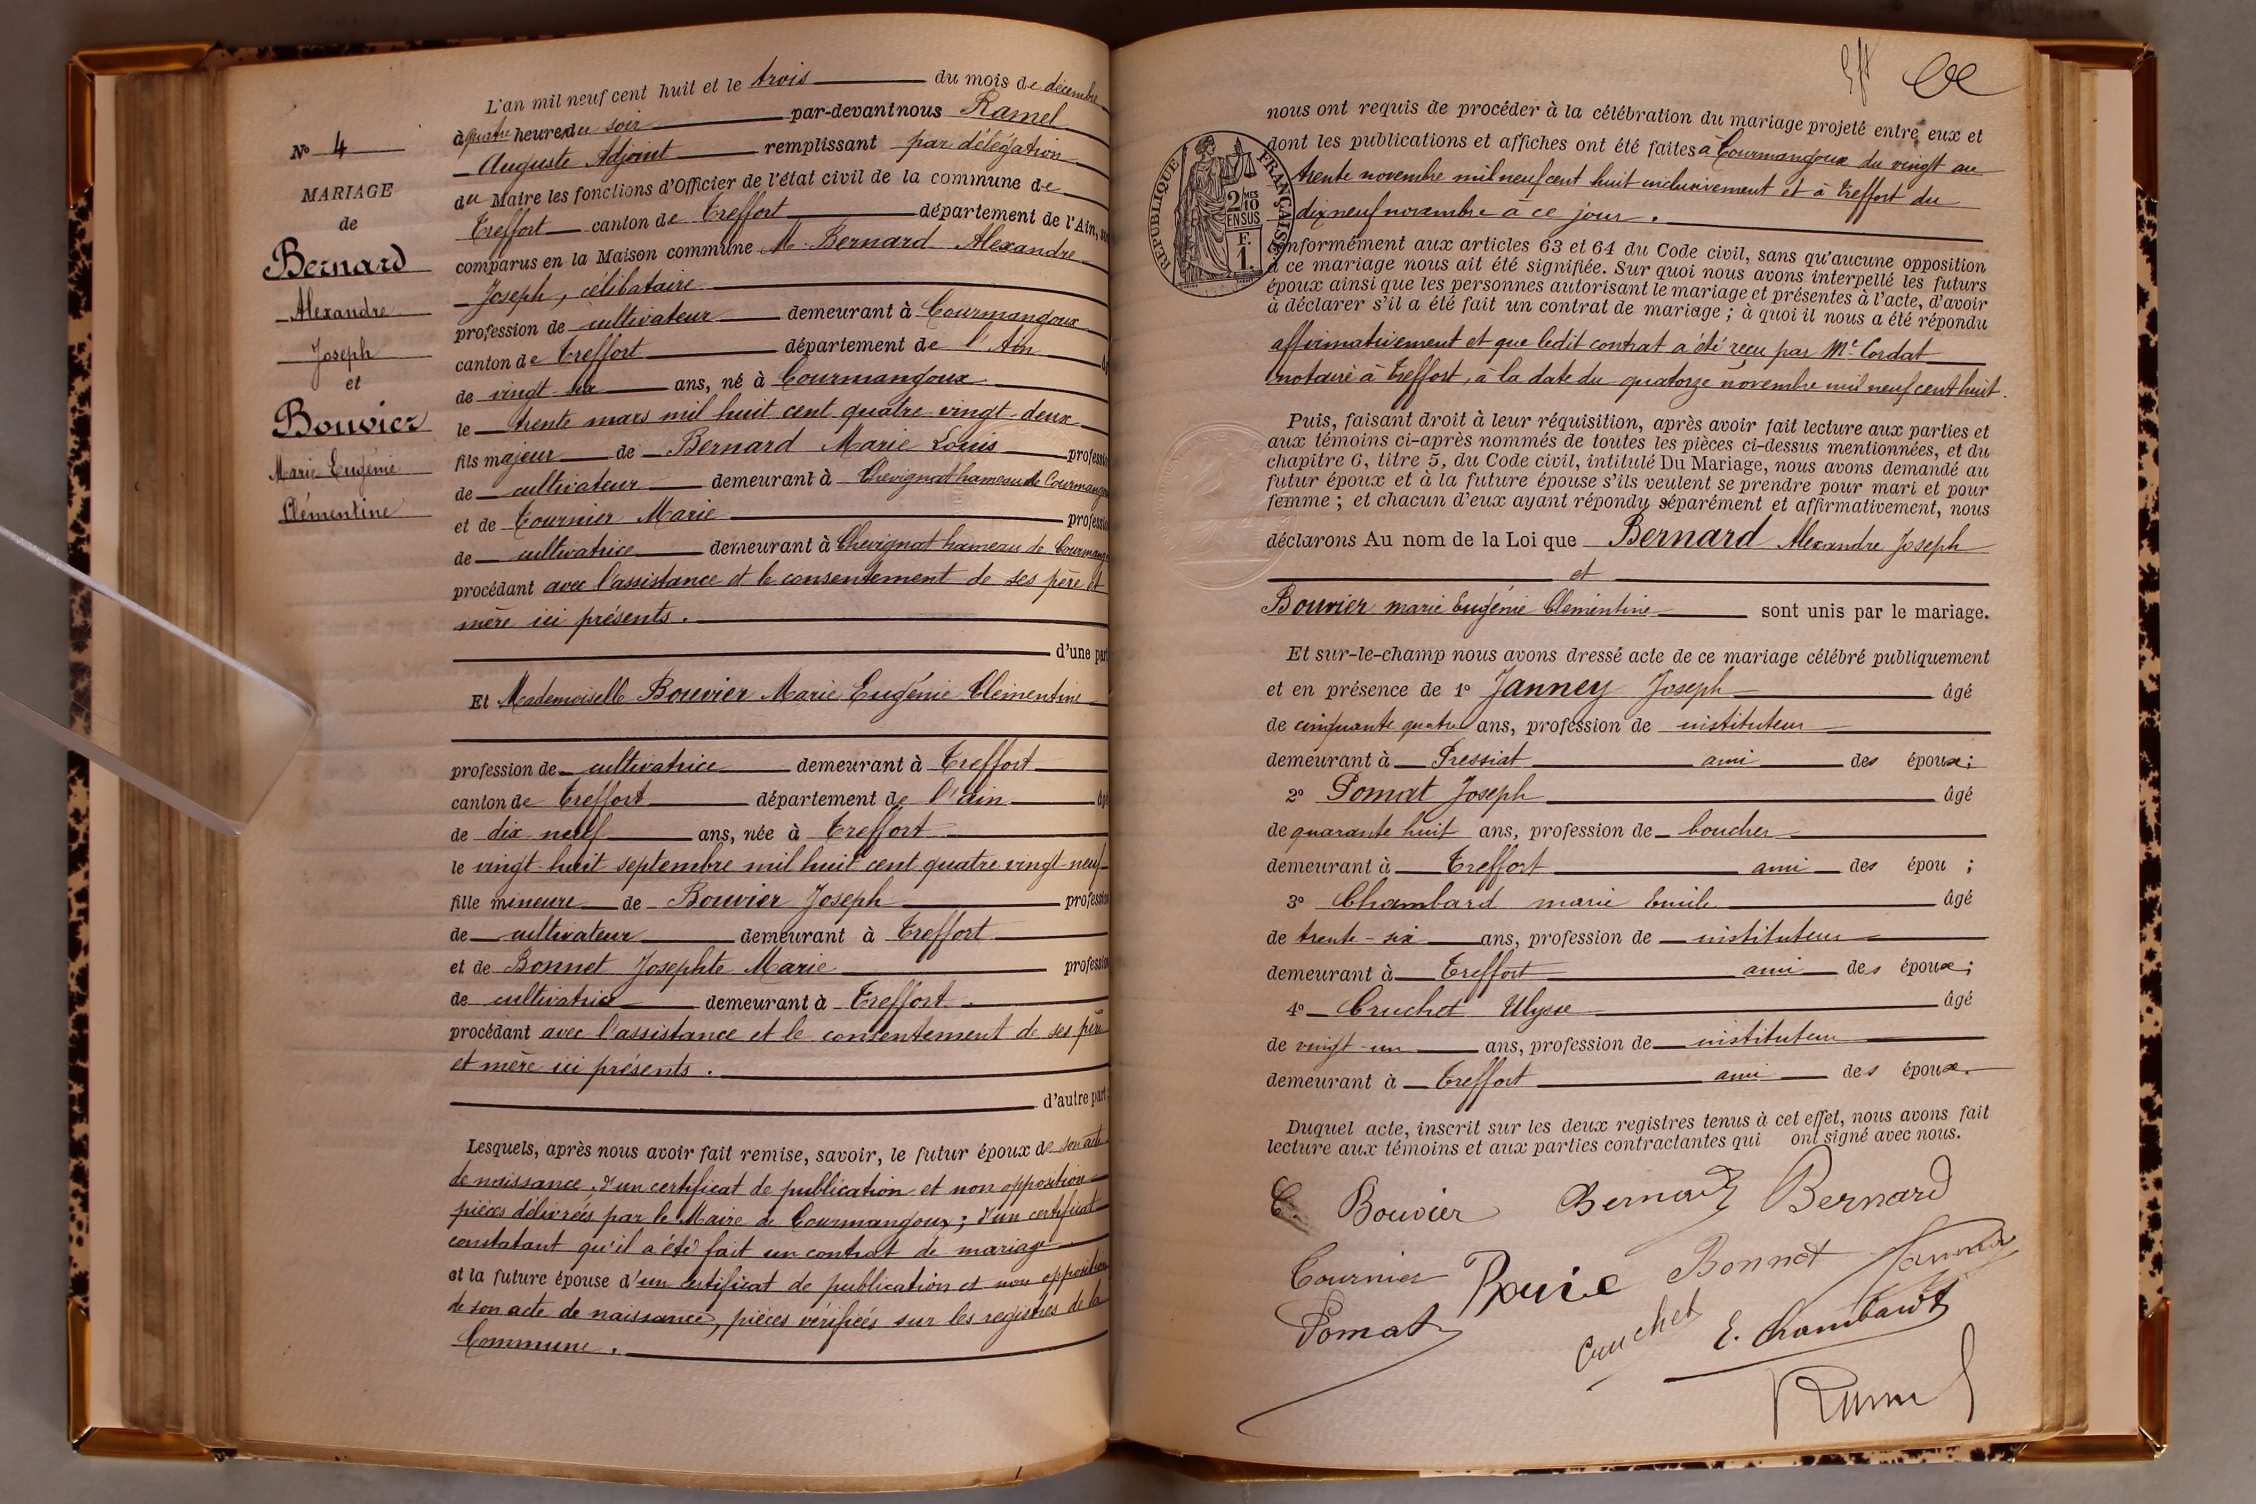 L'an mil neuf cent huit et le trois du mois de décembre
à quatre heures du soir par-devant nous Ramel
Auguste Adjoint remplissant par délégation
du Maire les fonctions d'Officier de l'état civil de la commune de
Treffort canton de Treffort département de l'Ain,
comparus en la Maison commune M. Bernard Alexandre
Joseph, célibataire
profession de cultivateur demeurant à Courmangoux
canton de Treffort département de l'Ain
de vingt-six ans, né à Courmangoux
le trente mars mil huit cent quatre-vingt-deux
fils majeur de Bernard Marie Louis profession
de cultivateur demeurant à Chevignat hameau de Courmangoux
et de Tournier Marie profession
de cultivatrice demeurant à Chevignat hameau de Courmangoux
procédant avec l'assistance et le consentement de ses père et
mère ici présents.
d'une part
Et Mademoiselle Bouvier Marie Eugénie Clémentine
profession de cultivatrice demeurant à Treffort
canton de Treffort département de l'ain âgé
de dix-neuf ans, née à Treffort
le vingt-huit septembre mil huit cent quatre vingt-neuf
fille mineure de Bouvier Joseph profession
de cultivateur demeurant à Treffort
et de Bonnet Josephte Marie profession
de cultivatrice demeurant à Treffort.
procédant avec l'assistance et le consentement de ses père
et mère ici présents.
d'autre part
Lesquels, après nous avoir fait remise, savoir, le futur époux de son acte
de naissance, d'un certificat de publication et non opposition
pièces délivrées par le Maire de Courmangoux; d'un certificat
constatant qu'il a été fait un contrat de mariage
et la future épouse d'un certificat de publication et non opposition
de son acte de naissance, pièces vérifiées sur les registres de la
Commune.
N° 4
MARIAGE
de
Bernard
Alexandre
Joseph
et
Bouvier
Marie Eugénie
Clémentine
nous ont requis de procéder à la célébration du mariage projeté entre eux et
dont les publications et affiches ont été faites à Courmangoux du vingt au
trente novembre mil neuf cent huit inclusivement et à Treffort du
dix neuf novembre à ce jour.
RÉPUBLIQUE FRANÇAISE
2/10 MES
EN SUS
F.
1.
onformément aux articles 63 et 64 du Code civil, sans qu'aucune opposition
à ce mariage nous ait été signifiée. Sur quoi nous avons interpellé les futurs
époux ainsi que les personnes autorisant le mariage et présentes à l'acte, d'avoir
à déclarer s'il a été fait un contrat de mariage ; à quoi il nous a été répondu
affirmativement et que ledit contrat a été reçu par Me Cordat
notaire à Treffort, à la date du quatorze novembre mil neuf cent huit.
Puis, faisant droit à leur réquisition, après avoir fait lecture aux parties et
aux témoins ci-après nommés de toutes les pièces ci-dessus mentionnées, et du
chapitre 6, titre 5, du Code civil, intitulé Du Mariage, nous avons demandé au
futur époux et à la future épouse s'ils veulent se prendre pour mari et pour
femme ; et chacun d'eux ayant répondu séparément et affirmativement, nous
déclarons Au nom de la Loi que Bernard Alexandre Joseph
et
Bouvier marie Eugénie Clémentine sont unis par le mariage.
Et sur-le-champ nous avons dressé acte de ce mariage célébré publiquement
et en présence de 1° Janney Joseph âgé
de cinquante quatre ans, profession de instituteur
demeurant à Pressiat ami des époux ;
2° Pomat Joseph âgé
de quarante huit ans, profession de boucher
demeurant à Treffort ami des épou ;
3° Chambard marie Emile âgé
de trente-six ans, profession de instituteur
demeurant à Treffort ami des époux ;
4° Cruchet Ulysse âgé
de vingt-un ans, profession de instituteur
demeurant à Treffort ami des époux.
Duquel acte, inscrit sur les deux registres tenus à cet effet, nous avons fait
lecture aux témoins et aux parties contractantes qui ont signé avec nous.
C. Bouvier Bernard Bernard
Tournier Bonnet Janney
Pomat Cruchet E. Chambard
Ramel